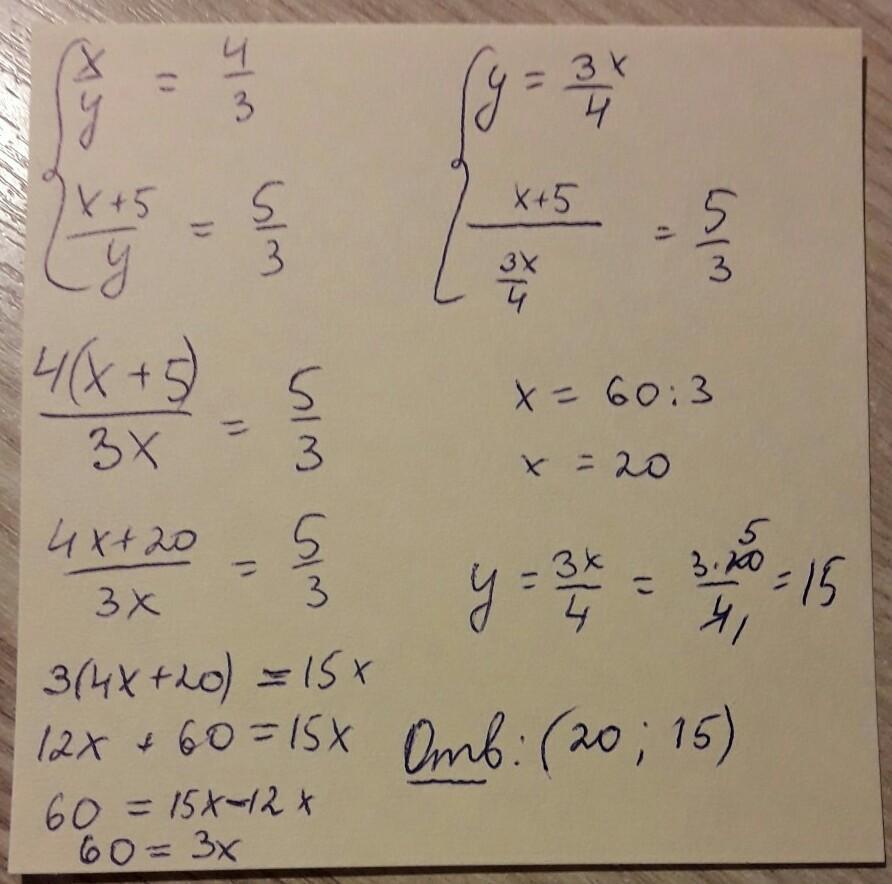 { x/y = 4/3
(x+5)/y = 5/3
{ y = 3x/4
(x+5)/(3x/4) = 5/3
4(x+5)/3x = 5/3
(4x+20)/3x = 5/3
3(4x+20) = 15x
12x + 60 = 15x
60 = 15x-12x
60 = 3x
x = 60:3
x = 20
y = 3x/4 = 3·20 5/4 1 = 15
Отв: (20 ; 15)